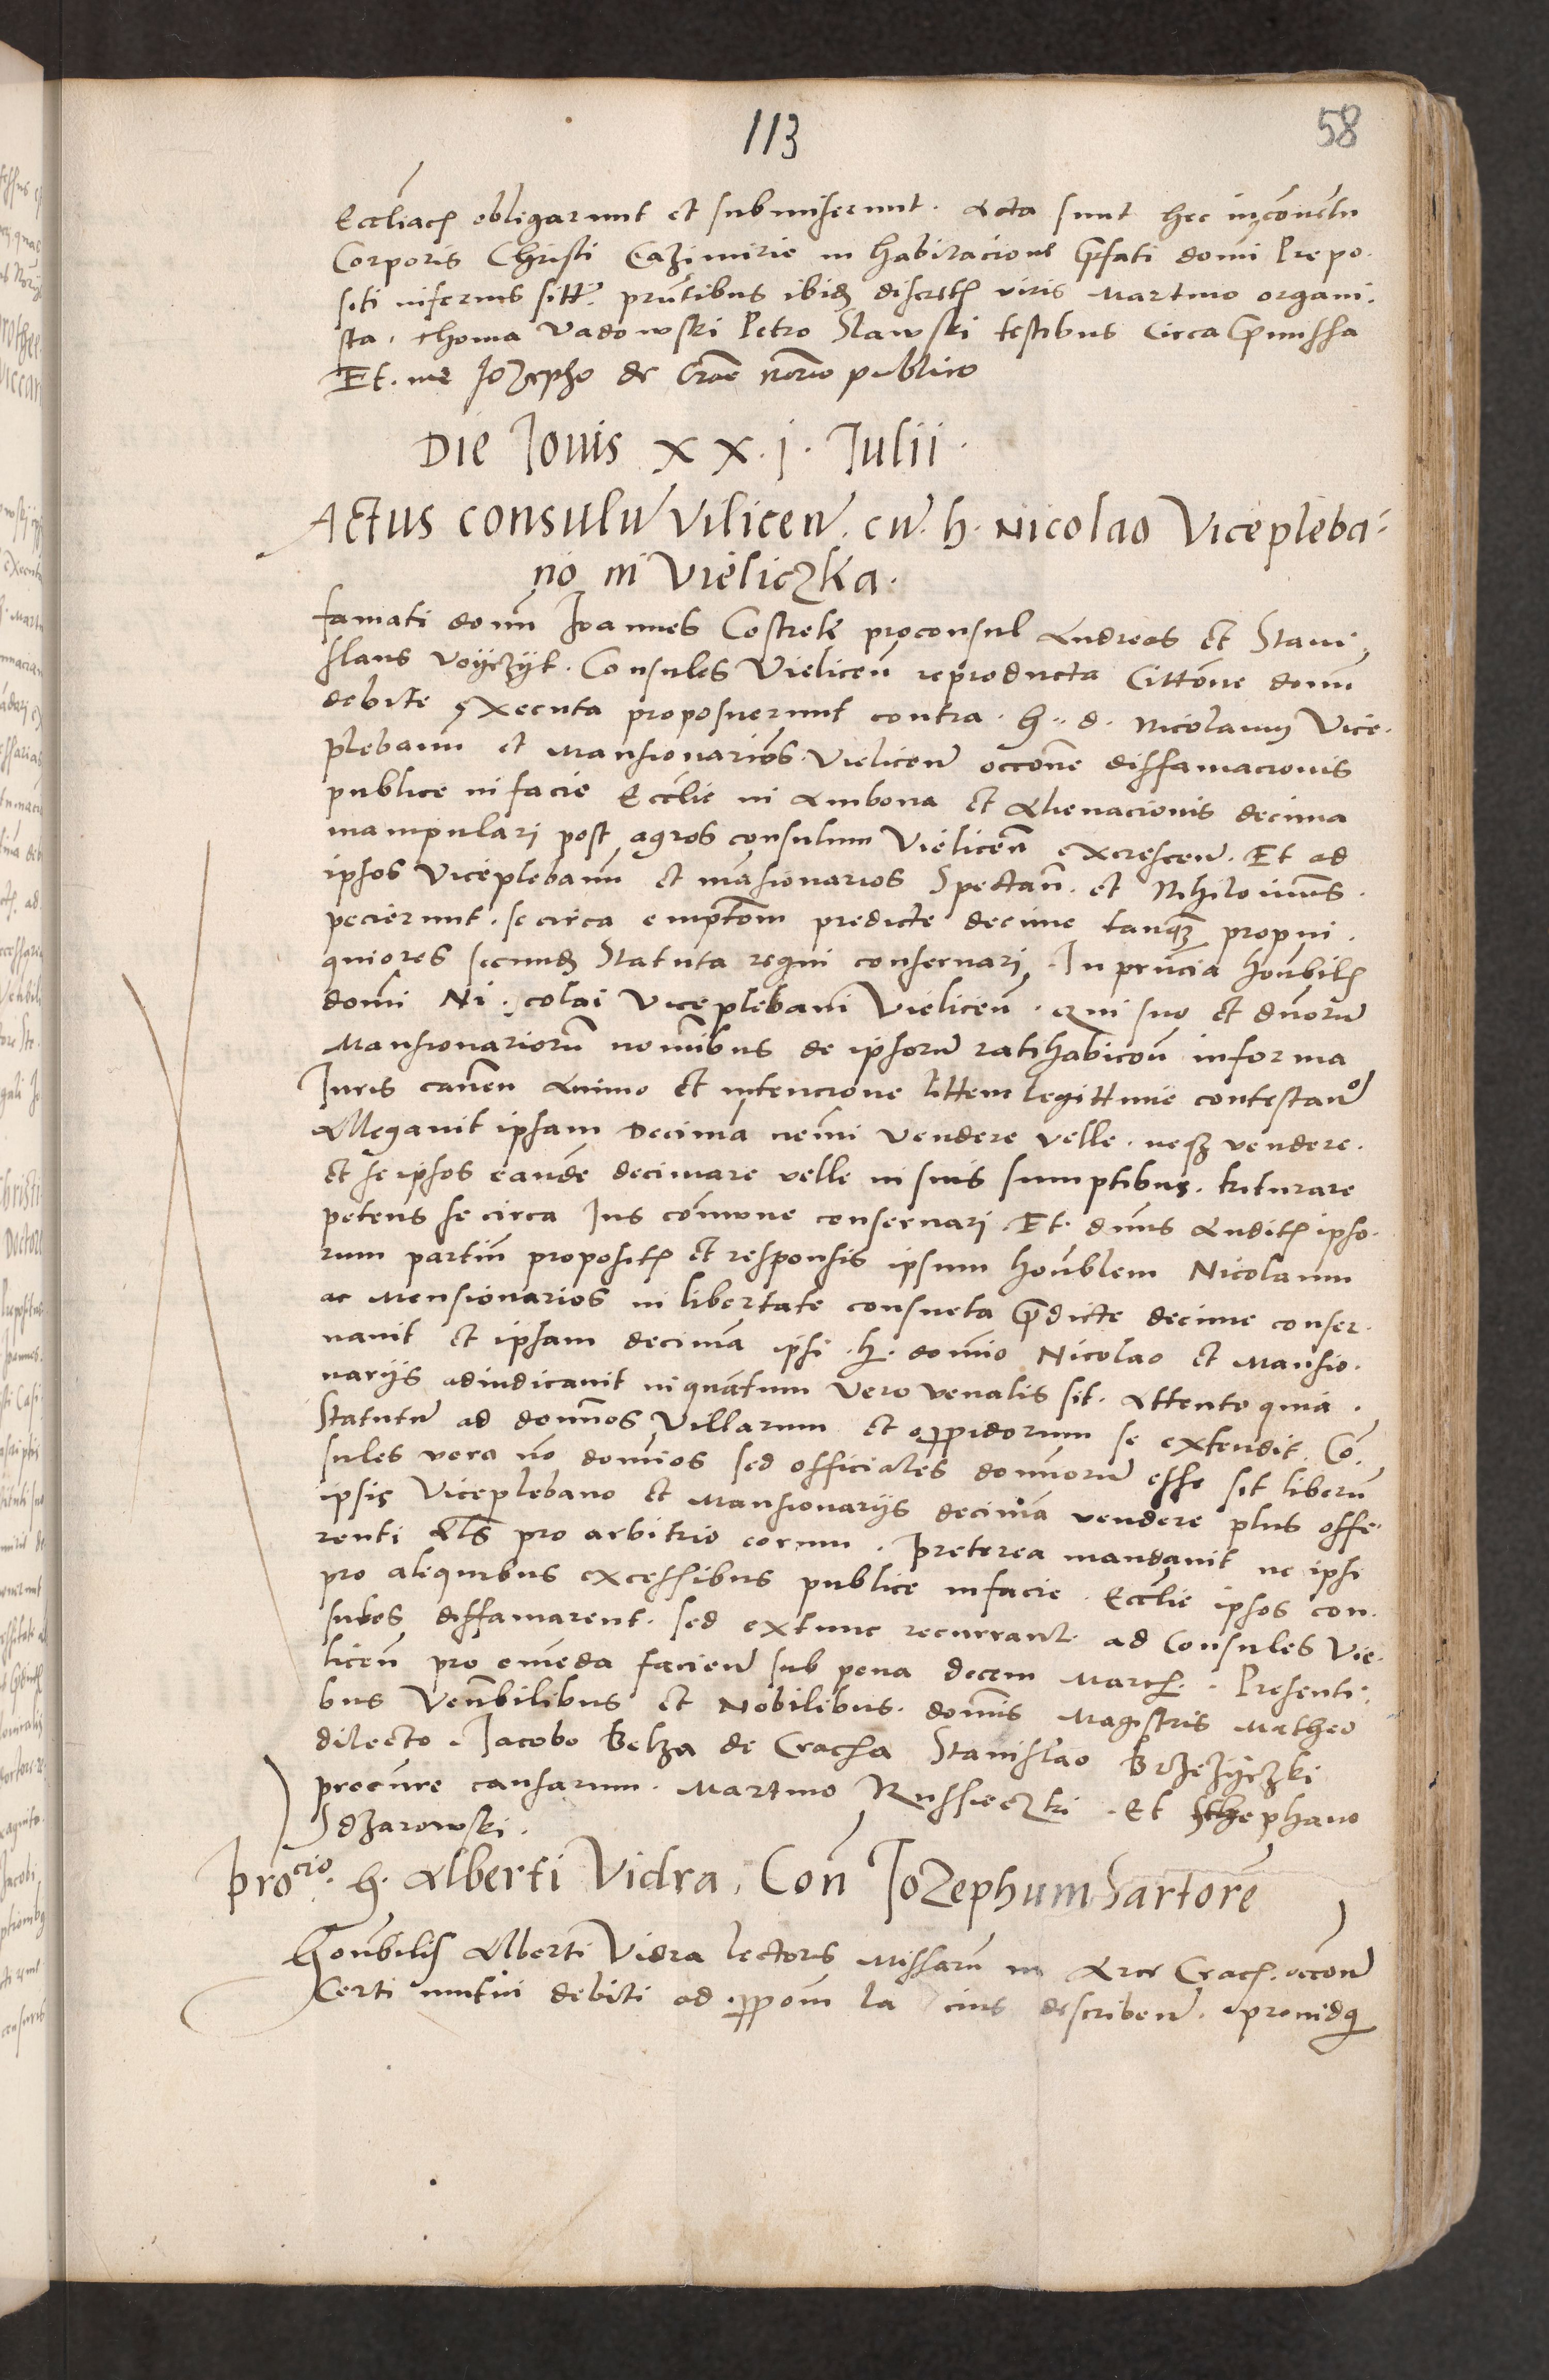 113
58
Eccliach obligarunt et submiserunt. Acta sunt hec in conventu
Corporis Christi Cazimirie in habitacione prefati domi Prepo-
siti inferius sitt. pntibus ibidem discretis viris Martino organi-
sta. Thoma Vadowski Petro Slawski testibus circa premissa
Et. me Jozepho de Crac notario publico
Die Jovis XX.j. Julii.
Actus consulum Vilicen. cum. h. Nicolao Vicepleba-
no in Vieliczka.
famati domi Joannes Costrek proconsul Andreas et Stani-
slaus Voyczyk. Consules Vielicen reproducta Cittone domi
debite executa proposuerunt contra. h. d. Nicolaum Vice-
plebanum et Mansionarios. Vielicen occone diffamacionis
publice in facie Ecclie in Ambona et Alienacionis decima
manipulari post agros consulum Vielicen excrescen. Et ad
ipsos Viceplebanum et mansionarios Spectan. et Nihilominus.
pecierunt. se circa emptom predicte decime tanquam propin-
quiores secundum Statuta regni conservari. In presencia honbilis
domi Ni. colai Viceplebani Vielicen. Qui suo et duorum
Mansionariorum nominibus de ipsorum ratihabicone in forma
Juris caven Animo et intencione littem legittime contestando
Allegavit ipsam Decimam nemini vendere velle. neque vendere.
et se ipsos eandem decimare velle in suis sumptibus. triturare
petens se circa Jus commune conservari. Et. dnus Auditis ipso-
rum partium propositis et responsis ipsum honblem Nicolaum
ac Mensionarios in libertate consueta predicte decime conser-
vavit et ipsam decimam ipsi. h. domino Nicolao et Mansio-
nariis adiudicavit in quantum vero venalis sit. Attento quia.
Statutum ad dominos Villarum et oppidorum se extendit. Con-
sules vero non dominos sed officiales dominorum esse sit liberum
ipsis Viceplebano et Mansionariis decimam vendere plus offe-
renti Als pro arbitrio eorum. Preterea mandavit ne ipsi
pro aliquibus excessibus publice in facie. Ecclie ipsos con-
sules diffamarent. sed extunc recurrant. ad Consules Vie-
licen pro emenda facien sub pena decem March. Presenti-
bus Venbilibus et Nobilibus. dominis Magistris Matheo
dilecto. Jacobo Belza de Cracha Stanislao Brzezyczki
procure causarum. Martino Russieczki. Et Sthephano
Sdzarowski.
procio. h. Alberti Vidra. Con Jozephum Sartorem
Honbilis Alberti Vidra lectoris Missarum in Arce Crach. occone
Certi mutui debiti ad oppom la cius describen. providum